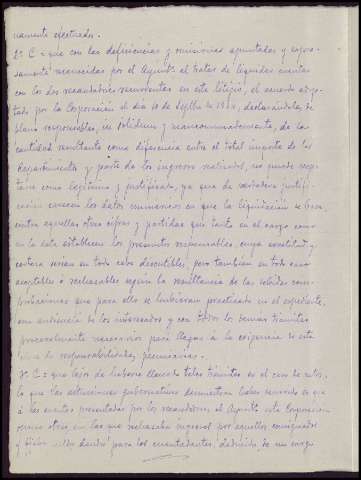 namente efectuado.
2º C = que con las deficiencias y omisiones apuntadas y expre-
samente reconocidas por el Ayuntº al tratar de liquidar cuentas
con los dos recaudadores recurrentes en este litigio, el acuerdo adop-
tado por la Corporación el día 10 de Sepbre de declarándolos, de
plano responsables, in solidum y mancomunadamente, de la
cantidad resultante como diferencia entre el total importe de los
repartimientos y parte de los ingresos realizados, no puede repu-
tarse como legítimo y justificado, ya que de verdadera justifi-
cación carecen los datos numéricos en que la liquidación se basa,
entre aquellas otras cifras y partidas que tanto en el cargo como
en la data establecen los presuntos responsables, cuya exactitud y
certeza serían en todo caso discutibles, pero también en todo caso
aceptables o rechazables según la resultancia de las debidas com-
probaciones que para ello se hubieran practicado en el expediente,
con audiencia de los interesados y con todos los demás trámites
procesalmente necesarios para llegar á la exigencia de esta
clase de responsabilidades pecuniarias.
3º C = que lejos de haberse llenado tales trámites en el caso de autos,
lo que las actuaciones gubernativas demuestran haber ocurrido es que
á las cuentas presentadas por los recaudadores, el Ayuntº esta Corporación
opuso otras, en las que rechazaba ingresos por aquellos consignados
y para los cuentadantes, deducido, de un cargo